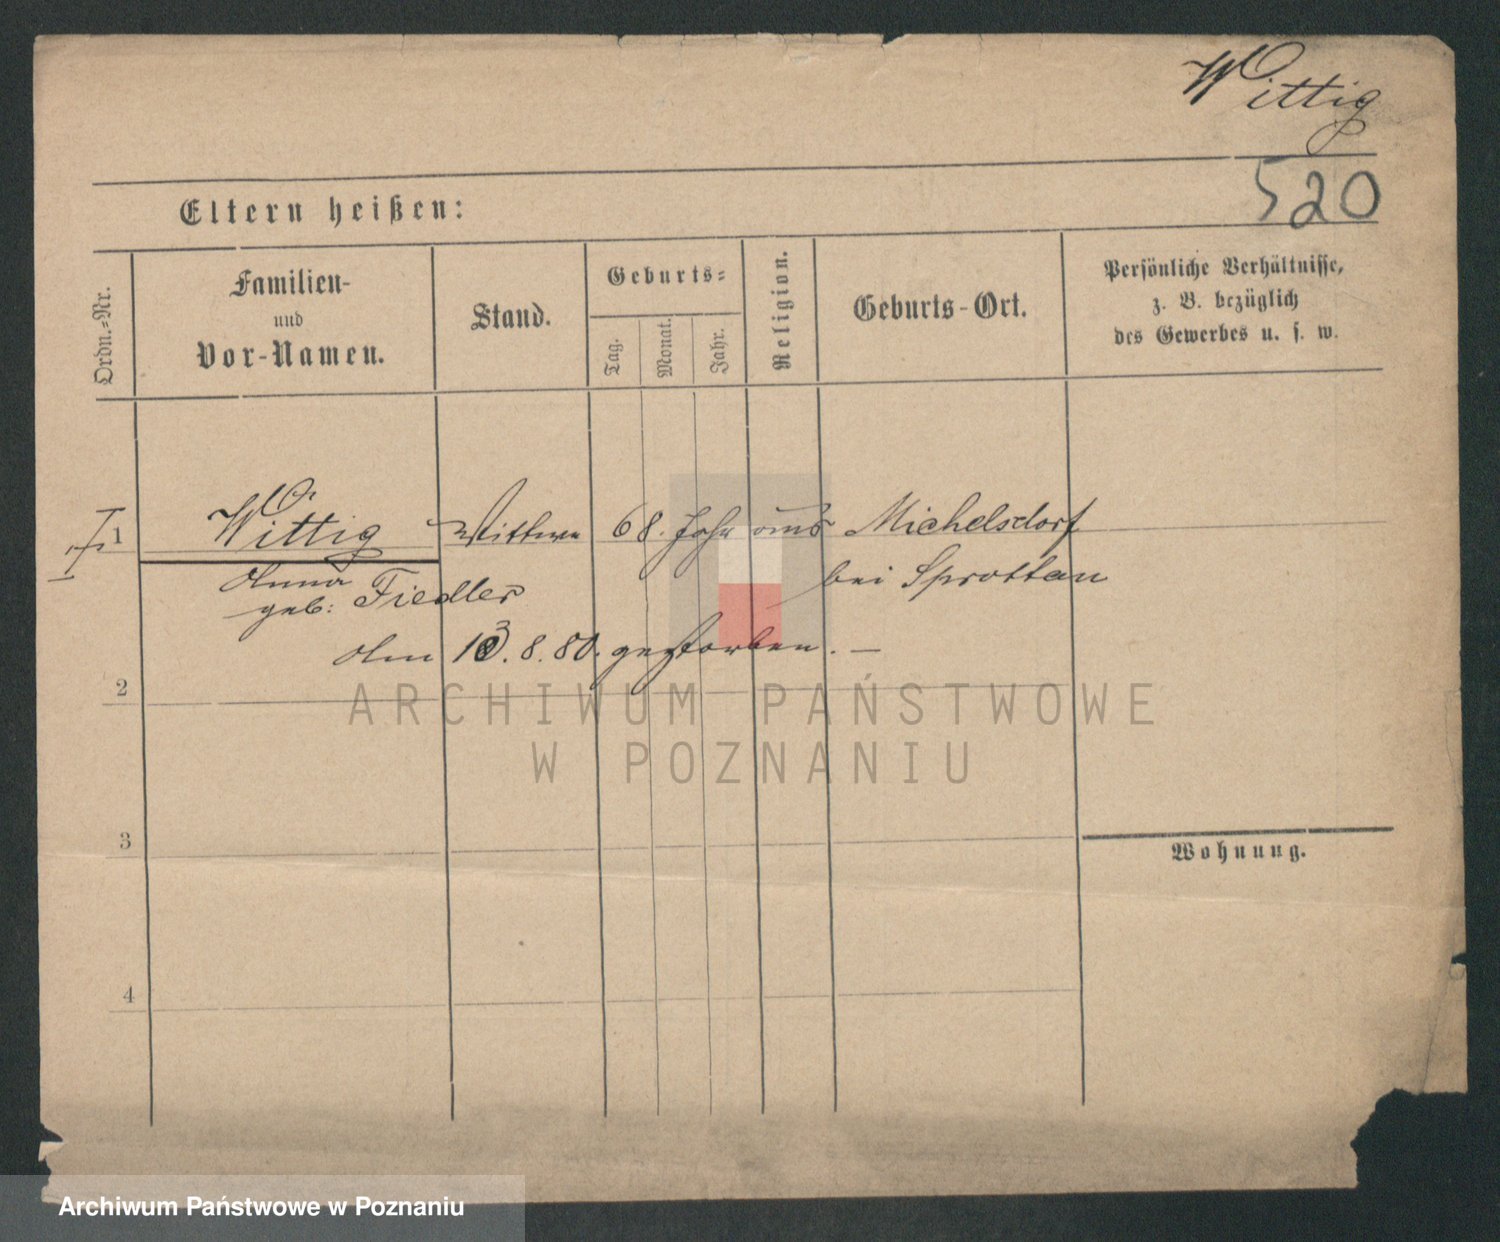 Wittig
520
Eltern heißen:
Ordn.=Nr.
Familien-
und
Vor-Namen.
Stand.
Geburts=
Tag.
Monat.
Jahr.
Religion.
Geburts-Ort.
Persönliche Verhältnisse,
z. B. bezüglich
des Gewerbes u. s. w.
1 Wittig Wittwe 68. Jahr Michelsdorf
Anna bei Sprottau
geb: Fiedler
Am 13. 8. 80. gestorben. —
2
ARCHIWUM PAŃSTWOWE
W POZNANIU
3
Wohnung.
4
Archiwum Państwowe w Poznaniu